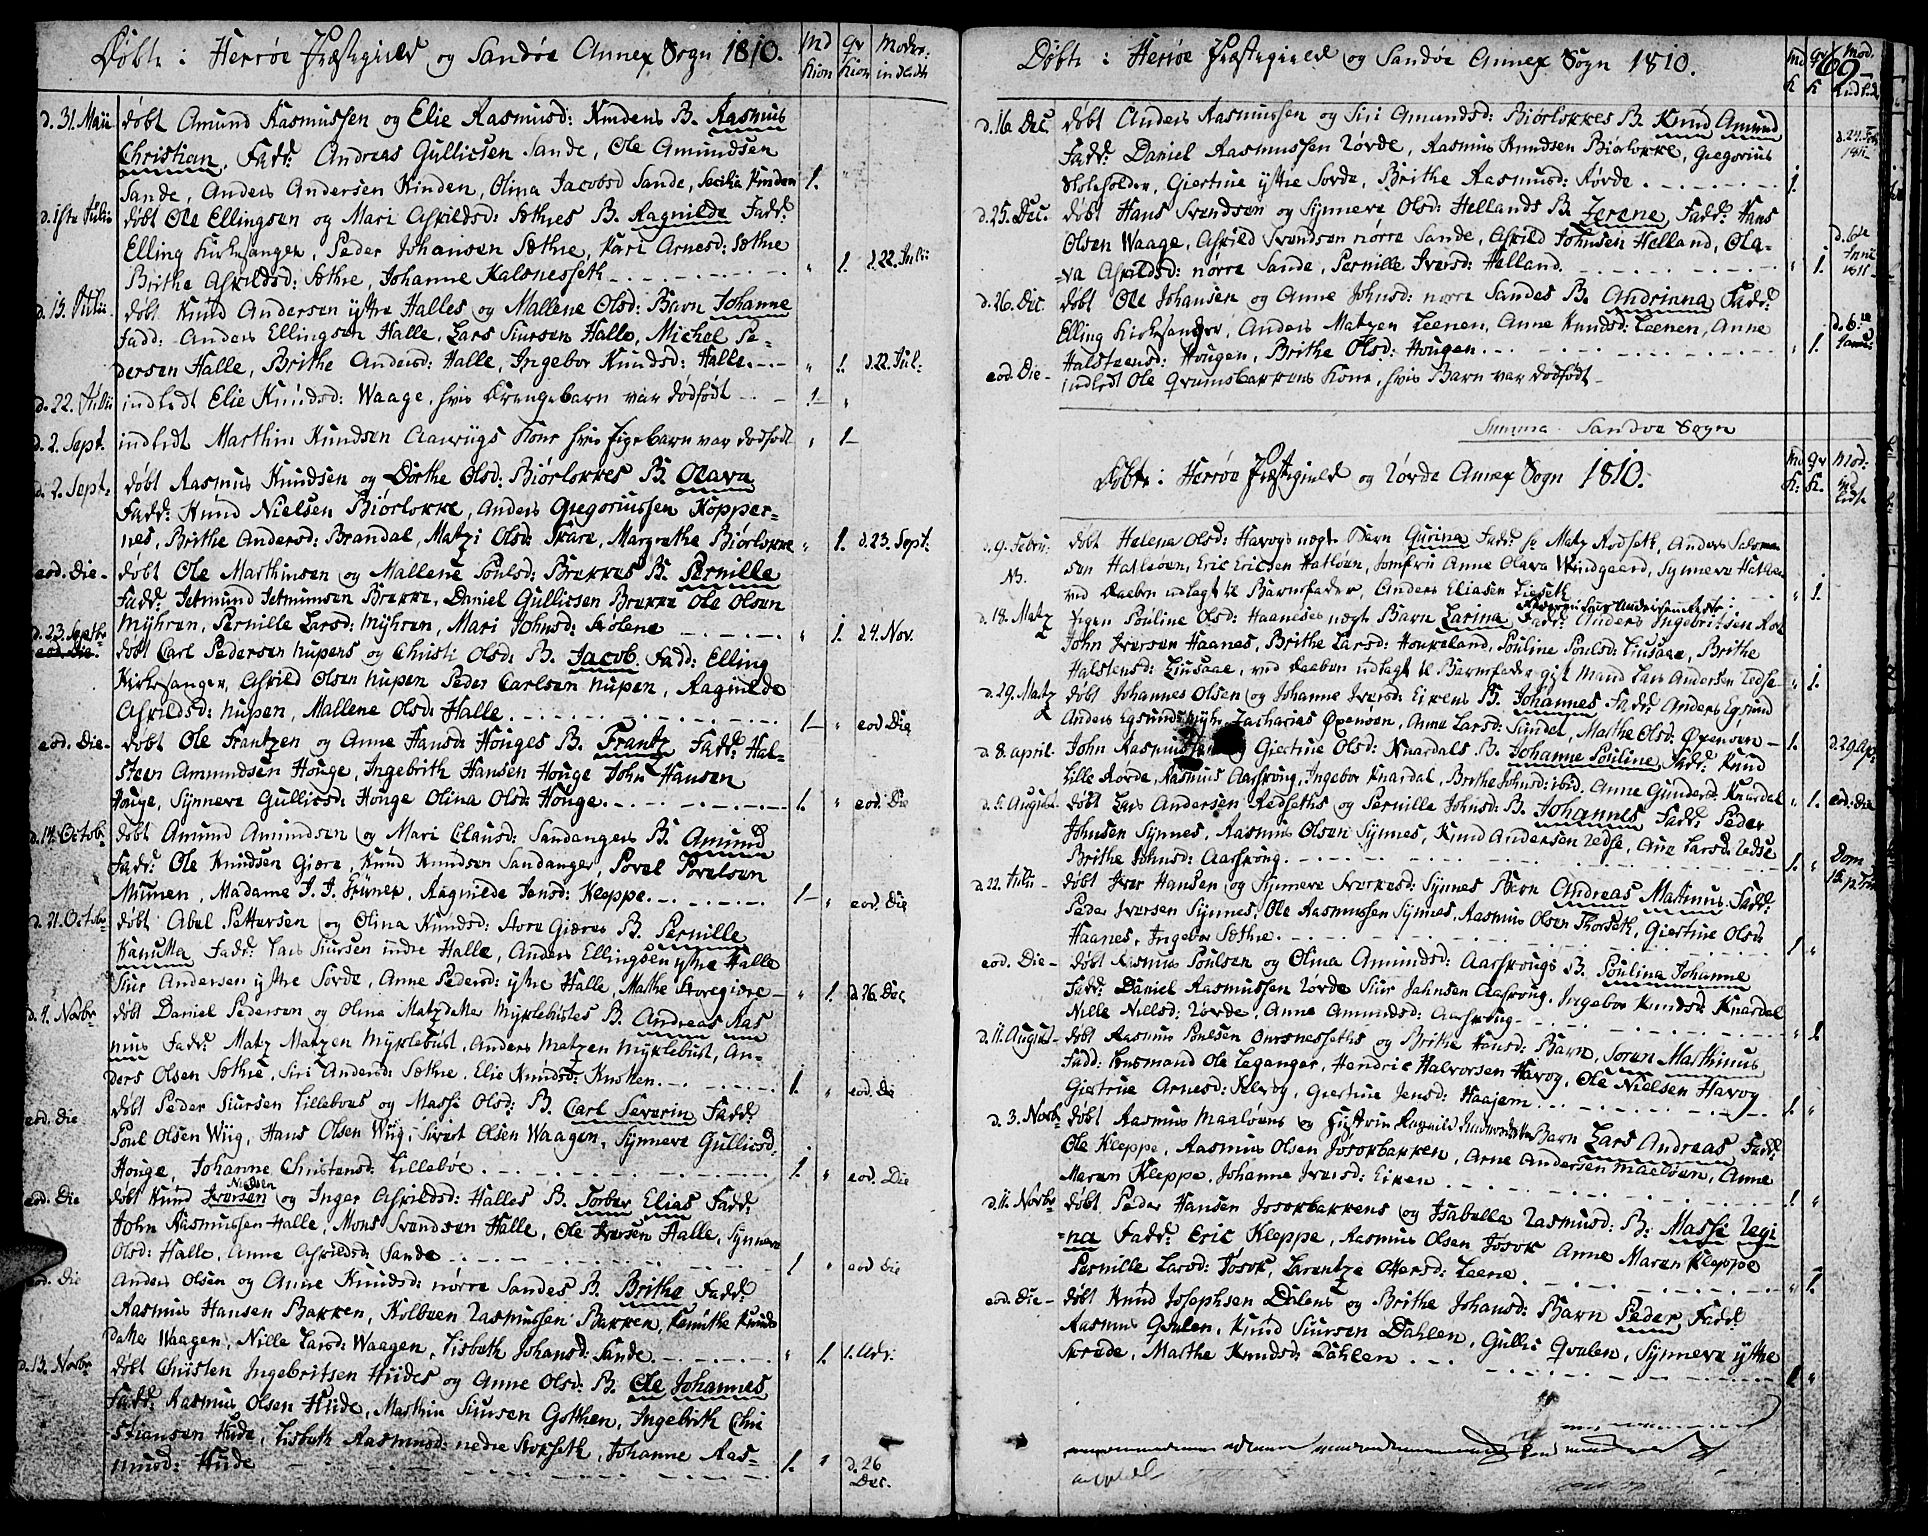 Døbte i Herrøe Præstegield og Sandøe Annex Sogn 1810.
Md Kion
Qv Kion
Modre: indledt
d. 31. Maii døbt Amund Rasmussen og Elie Rasmusd: Kindens B. Rasmus
Christian, Fadd: Andreas Gullicsen Sande, Ole Amundsen
Sande, Anders Andersen Kinden, Olina Jacobsd Sande, Secilia Kinden 1.
d. 1ste Julii døbt Ole Ellingsen og Mari Askildsd: Sæthres B. Ragnilde Fadd:
Elling Kirkesanger, Peder Johansen Sæthre, Kari Arnesd: Sæthre
Brithe Askildsd: Sæthre, Johanne Kalsnesseth " 1. d. 22. Julii
d. 15. Julii døbt Knud Andersen ystre Halles og Mallene Olsd: Barn Johanne
Fadd: Anders Ellingsen Halle, Lars Siursen Halle, Michel Pe-
dersen Halle, Brithe Andersd: Halle, Ingebor Knudsd: Halle. " 1. d. 22. Jul:
d. 22. Julii indledt Elie Knudsd: Waage, hvis Drengebarn var dødfødt 1. "
d. 2. Sept. indledt Marthin Knudsen Aarvigs Kone hvis Pigebarn var dødfødt " 1
d. 2. Sept: døbt Rasmus Knudsen og Dorthe Olsd: Biørlokkes B. Olava
Fadd: Knud Nielsen Biørlokke, Anders Gregoriussen Kopper-
nes, Brithe Andersd: Brandal, Matzi Olsd: Skare, Margrethe Biørlokke " 1. d. 23. Sept:
eod. Die døbt Ole Marthinsen og Mallene Poulsd: Brekkes B. Pernille
Fadd: Jetmund Jetmundsen Brekke, Daniel Gullicsen Brekke Ole Olsen
Myhren, Pernille Larsd: Myhren, Mari Johnsd: Stølene " 1. 24. Nov.
d. 23. Septbr døbt Carl Pedersen Nupens og Christi Olsd: B. Jacob. Fadd: Elling
Kirkesanger, Askild Olsen Nupen Peder Carlsen Nupen, Ragnilde
Askildsd: Nupen, Mallene Olsd: Halle 1 " eod Die
eod. Die døbt Ole Frantzen og Anne Hansd: Houges B. Frantz Fadd: Hal-
steen Amundsen Houge, Ingebrith Hansen Houge John Hansen
Houge, Synneve Gullicsd: Houge Olina Olsd: Houge. 1. " eod. Die
d. 14. Octob: døbt Amund Amundsen og Mari Clausd: Sandangers B. Amund
Fadd: Ole Knudsen Giære, Knud Knudsen Sandanger, Povel Povelsen
Muunen, Madame J. J. Grüner, Ragnilde Jensd: Kleppe. 1 " eod. Die
d. 21. Octobr døbt Abel Pettersen og Olina Knudsd: Store Giæres B. Pernille
Kanutta Fadd: Lars Siursen indre Halle, Anders Ellingsen ystre Halle
Siur Andersen ystre Sørde, Anne Pedersd: ystre Halle, Marthe Storegiære " 1. d. 26. Dec
d. 4. Novbr døbt Daniel Pedersen og Olina Matzdatter Myklebustes B. Andreas Ras
mus Fadd: Matz Matzen Myklebust, Anders Matzen Myklebust, An-
ders Olsen Sæthre, Siri Andersd: Sæthre, Elie Knudsd: Knotten. 1. " eod. Die
eod. Die døbt Peder Siursen Lillebøes og Massi Olsd: B. Carl Severin Fadd:
Poul Olsen Wiig, Hans Olsen Wiig, Sivert Olsen Waagen, Synneve Gullicsd:
Houge, Johanne Christensd: Lillebøe 1. " eod. Die
eod. Die døbt Knud Iversen Nielsen og Inger Askildsd: Halles B. Torber Elias Fadd:
John Rasmussen Halle, Mons Svendsen Halle, Ole Iversen Halle, Synneve
Olsd: Halle, Anne Askildsd: Sande 1 " eod die
eod. Die Anders Olsen og Anne Knudsd: nørre Sandes B. Brithe Fadd:
Rasmus Hansen Bakken, Kolbeen Rasmussen Bakken, Kanutte Knuds
datter Waagen, Nille Larsd: Waagen, Lisbeth Johansd: Sande. " 1.
d. 13. Novbr døbt Christen Ingebritsen Hiides og Anne Olsd: B. Ole Johannes
Fadd: Rasmus Olsen Hiide, Marthin Siursen Gotthen, Ingebrith Chri
stiansen Hiide, Lisbeth Rasmusd: nedre Storseth, Johanne Ras-
musd: Hiide 1. " d. 26 Dec.
Døbte i Herrøe Præstegield og Sandøe Annex Sogn 1810.
Md K
Qv K
Mod. indledt
69
d. 16. Dec døbt Anders Rasmussen og Siri Amundsd: Biørlokkes B. Knud Amund
Fadd: Daniel Rasmussen Rørde, Rasmus Knudsen Biørlokke, Gregorius
Skoleholder, Giertine ystre Sørde, Brithe Rasmusd: Rørde 1. d. 24. Feb 1811
d. 25. Dec. døbt Hans Svendsen og Synneve Olsd: Hellands B Zerene, Fadd: Hans
Olsen Waage, Askild Svendsen nørre Sande, Askild Johnsen Helland, Ola-
va Askildsd: nørre Sande, Pernille Iversd: Halland. " 1 d. 6te 1811
d. 26. Dic døbt Ole Johansen og Anne Johnsd: nørre Sandes B. Andrinna Fadd:
Elling Kirkesanger, Anders Matzen Leenen, Anne Knudsd: Leenen, Anne
Halsteensd: Hougen, Brithe Olsd: Hougen. " 1. d. 6te Janu:
eod. Die indledt Ole Grunsbakkens Kone, hvis Barn var dødfødt
Summa Sandøe Sogn
Døbte i Herrøe Præstegield og Rørde Annex Sogn 1810.
Md K:
Qv K.
Mod: ind ledt.
d. 9. Febru: døbt Helena Olsd: Havogs uægte Barn Gurina Fadd: Matz Rodseth, Anders Salomon
NB. sen Hatleøen, Eric Ericsen Hatløen, Jomfru Anne Olava Windgaard, Synneve Hatløen
ved Daaben udlagt til Barnefader, Anders Eliassen Lieseth " 1.
d. 18. Matz Pigen Pouline Olsd: Haanæses uægte Barn Larina Fadd: Anders Ingebritsen
John Iversen Haanes, Brithe Larsd: Houkeland, Pouline Poulsd: Liusaae, Brithe
Halstensd: Liusaae, ved Daaben udlagt til Barnefader gift Mand Lars Andersen Redse " 1.
d. 29. Matz døbt Johannes Olsen og Johanne Iversd: Eikens B. Johannes Fadd: Anders Egsund
Anders Egsundsmyhr, Zacharias Øxensen, Anne Larsd: Sundet, Marthe Olsd: Øxensen 1. "
d. 8. April John Rasmussen og Giertine Olsd: Knardals B. Johanne Pouline, Fadd: Knud
Lille Rørde, Rasmus Aarskoug, Ingebor Knardal, Brithe Johnsd: ibid, Anne Gundersd: Knardal " 1. d. 29 Ap:
d. 5. August døbt Lars Andersen Redseths og Pernille Johnsd: B. Johannes Fadd: Peder
Johnsen Synnes, Rasmus Olsen Synnes, Knud Andersen Redse, Ane Larsd: Redse
Brithe Johnsd: Aarskoug. 1. " eod: Die
d. 22. Julii døbt Iver Hansen og Synneve Sverkesd: Synnes Barn Andreas Martinus Fadd: Dom 15. p. Trin
Peder Iversen Synnes, Ole Rasmussen Synnes, Rasmus Olsen Thorseth, Giertine Olsd:
Haanes, Ingebor Sæthre. 1. "
eod. Die døbt Rasmus Poulsen og Olina Amundsd: Aarskougs B. Poulina Johanne
Fadd: Daniel Rasmussen Rørde Siur Johnsen Aarskoug, Ingebor Knudsd: Knardal
Nille Nillsd: Rørde, Anne Amundsd: Aarskoug " 1
d. 11. August døbt Rasmus Poulsen Onsnesseths og Brithe Hansd: Barn, Søren Marthinus
Fadd: Lensmand Ole Leganger, Hendric Halvorsen Havog, Ole Nielsen Havog
Giertine Arnesd: Selvog, Giertine Jensd: Haajem 1. "
d. 3. Novb: døbt Rasmus Maaløens og Hustrue Ragnild Barn Lars Andreas Fadd:
Ole Kleppe, Rasmus Olsen Josokbakken, Arne Andersen Maeløen, Anne
Maren Kleppe, Johanne Iversd: Eiken 1. "
d. 11. Novbr døbt Peder Hansen Josokbakkens og Isabella Rasmusd: B: Massi Regi
na Fadd: Eric Kleppe, Rasmus Olsen Josok Anne Maren Kleppe
Pernille Larsd: Josok, Larentze Ottersd: Leene " 1.
eod. Die døbt Knud Josephsen Dalens og Brithe Johansd: Barn Peder Fadd:
Rasmus Qvalen, Knud Siursen Dahlen, Gullic Qvalen, Synneve ystre
Krøde, Marthe Knudsd: Dahlen 1 "